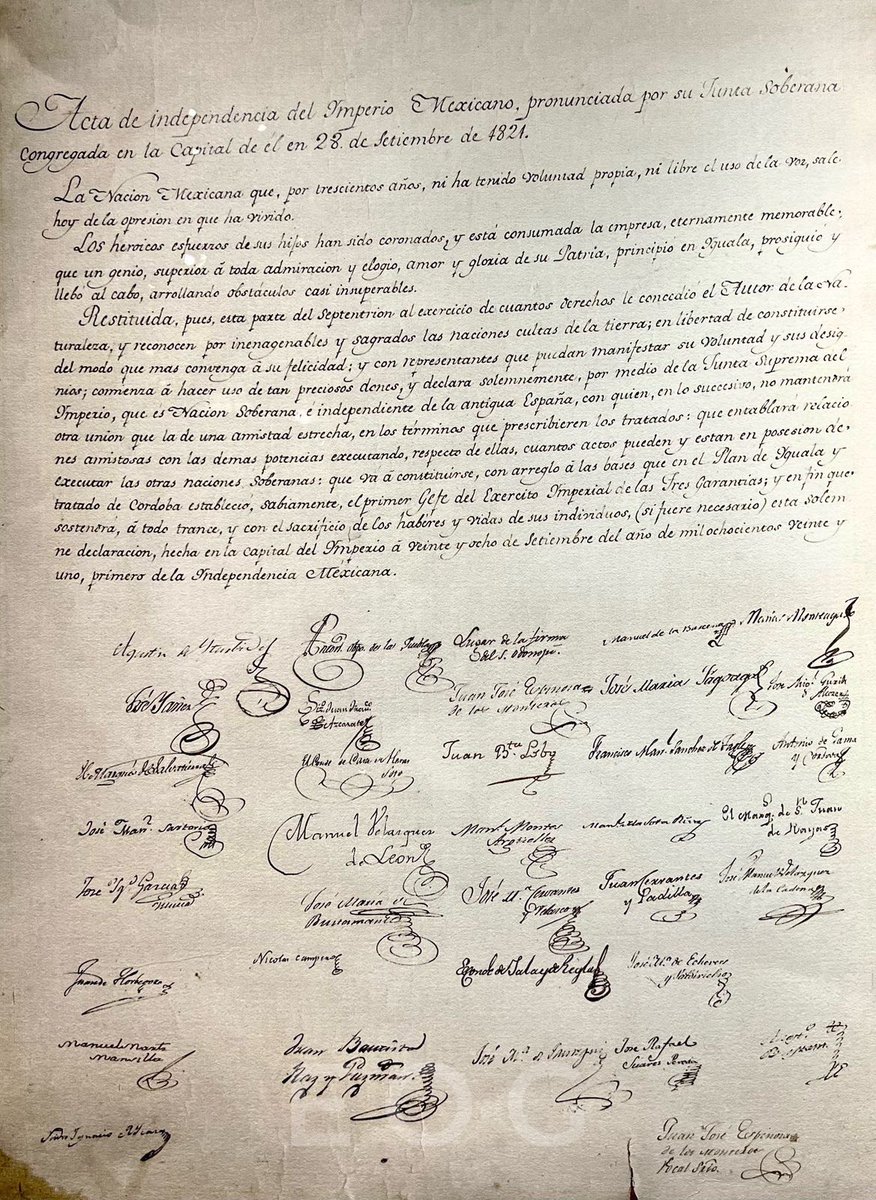 Acta de independencia del Ymperio Mexicano, pronunciada por su Junta Soberana
congregada en la Capital de él en 28 de Setiembre de 1821.
La Nacion Mexicana que, por trescientos años, ni ha tenido voluntad propia, ni libre el uso de la voz, sale
hoy de la opresion en que ha vivido.
Los heroicos esfuerzos de sus hijos han sido coronados, y está consumada la empresa, eternamente memorable,
que un genio, superior á toda admiracion y elogio, amor y gloria de su Patria, principió en Yguala, prosiguió y
llebó al cabo, arrollando obstáculos casi insuperables.
Restituida, pues, esta parte del Septentrion al exercicio de cuantos derechos le concedió el Autor de la Na-
turaleza, y reconocen por inenagenables y sagrados las naciones cultas de la tierra; en libertad de constituirse
del modo que mas convenga á su felicidad; y con representantes que puedan manifestar su voluntad y sus desig-
nios; comienza á hacer uso de tan preciosos dones, y declara solemnemente, por medio de la Junta Suprema del
Ymperio, que es Nacion Soberana, e independiente de la antigua España, con quien, en lo succesivo, no mantendrá
otra union que la de una amistad estrecha, en los términos que prescribieren los tratados: que entablará relacio
nes amistosas con las demas potencias executando, respecto de ellas, cuantos actos pueden y estan en posesion de
executar las otras naciones Soberanas: que vá á constituirse, con arreglo á las bases que en el Plan de Yguala y
tratado de Cordoba estableció, sabiamente, el primer Gefe del Exercito Ymperial de las Tres Garantías; y en fin que
sostendrá, á todo trance, y con el sacrificio de los habéres y vidas de sus individuos, (si fuere necesario) esta solem
ne declaracion, hecha en la Capital del Ymperio á veinte y ocho de Setiembre del año de mil ochocientos veinte y
uno, primero de la Yndependencia Mexicana.
Agustin de Yturbide Anton. Obpo. de la Puebla Lugar de la firma Manuel de la Barcena Matias Monteagudo
del S. Odonojú.
José Yañez Juan Fran. Juan José Espinosa José Maria Fagoaga
de Azcarate de los Monteros
Juan Bta. Lobo Francisco Man. Sanchez de Tagle Antonio de Gama
y Cordova
José Man. Sartorio Manuel Velasquez Man. Montes El Marq. de S. Juan
de Leon Argüelles de Rayas
José Ygn. Garcia José Maria de José M. Cervantes Juan Cervantes José Manuel Velazquez
Bustamante y Velasco y Padilla de la Cadena
Juan de Horbegozo Nicolas Campero El Conde de Jala y de Regla José M. de Echevers
y Valdivielso
Manuel Martz. Juan Bautista José M. de Jauregui José Rafael
Mansilla Raz y Guzman Suares Pereda
Pedro Ygnacio Juan José Espinosa
de los Monteros
Vocal Srio.